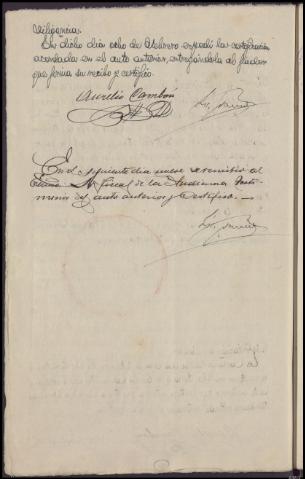 Diligencia.
En dicho dia ocho de Febrero expedí la certificación
acordada en el auto anterior, entregándola al fiador
que firma su recibo y certifico.
Aurelio Cambon
En el siguiente dia nueve se remitió al
Fiscal de la Audiencia testi-
monio del auto anterior y certifico.